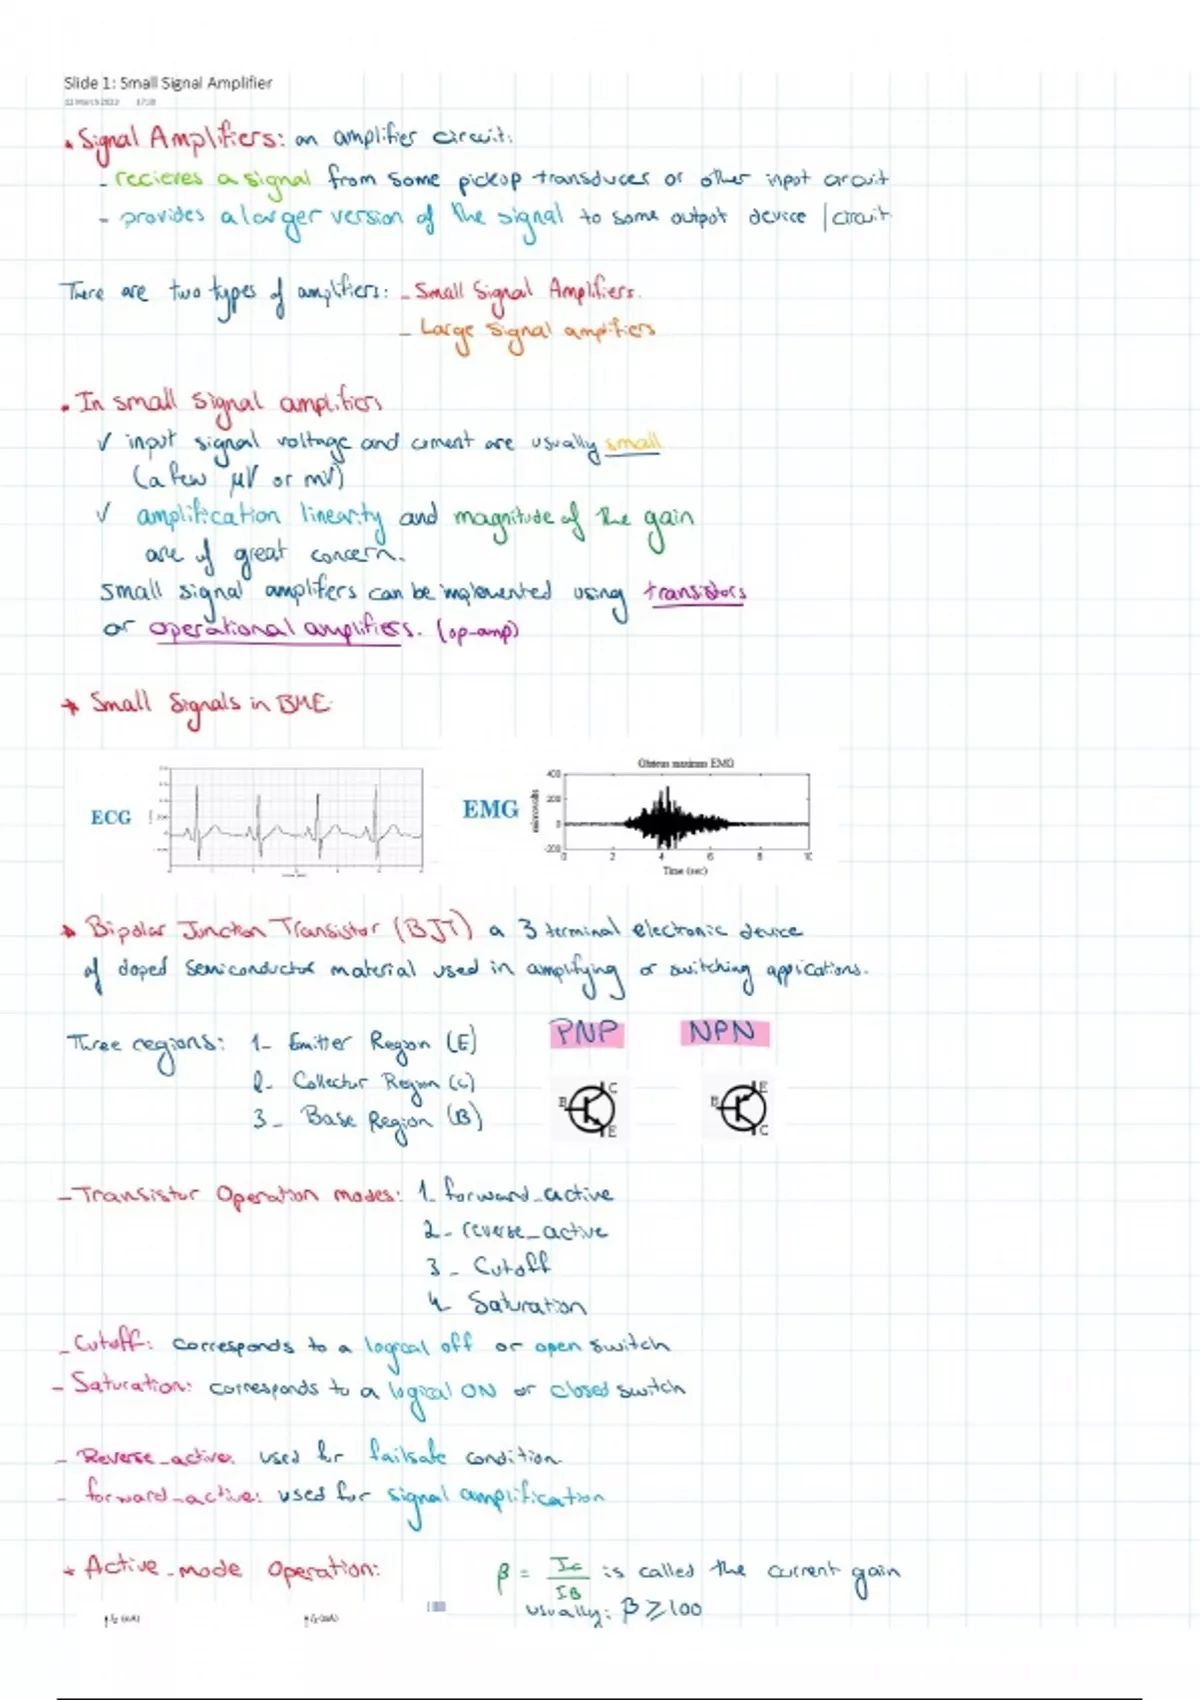 Slide 1: Small Signal Amplifier
22 March 2022 17:38
• Signal Amplifiers: an amplifier circuit:
- recieves a signal from some pickup transducer or other input circuit
- provides a larger version of the signal to some output device / circuit
There are two types of amplifiers: - Small Signal Amplifiers.
- Large signal amplifiers
• In small signal amplifiers
✓ input signal voltage and current are usually small
(a few μV or mV)
✓ amplification linearity and magnitude of the gain
are of great concern.
small signal amplifers can be implemented using transistors
or operational amplifiers. (op-amp)
* Small Signals in BME:
ECG
EMG
Obterus maximum EMG
microvolts
400
200
0
-200
0 2 4 6 8 10
Time (sec)
* Bipolar Junction Transistor (BJT) a 3 terminal electronic device
of doped semiconductor material used in amplifying or switching applications.
Three regions: 1- Emitter Region (E) PNP NPN
2- Collector Region (C)
3- Base Region (B)
B C E
B E C
- Transistor Operation modes: 1- forward_active
2- reverse_active
3- Cutoff
4- Saturation
- Cutoff: corresponds to a logical off or open switch
- Saturation: corresponds to a logical ON or closed switch
- Reverse_active: used for failsafe condition.
- forward_active: used for signal amplification
* Active_mode Operation: β = IC/IB is called the current gain
usually: β ≥ 100